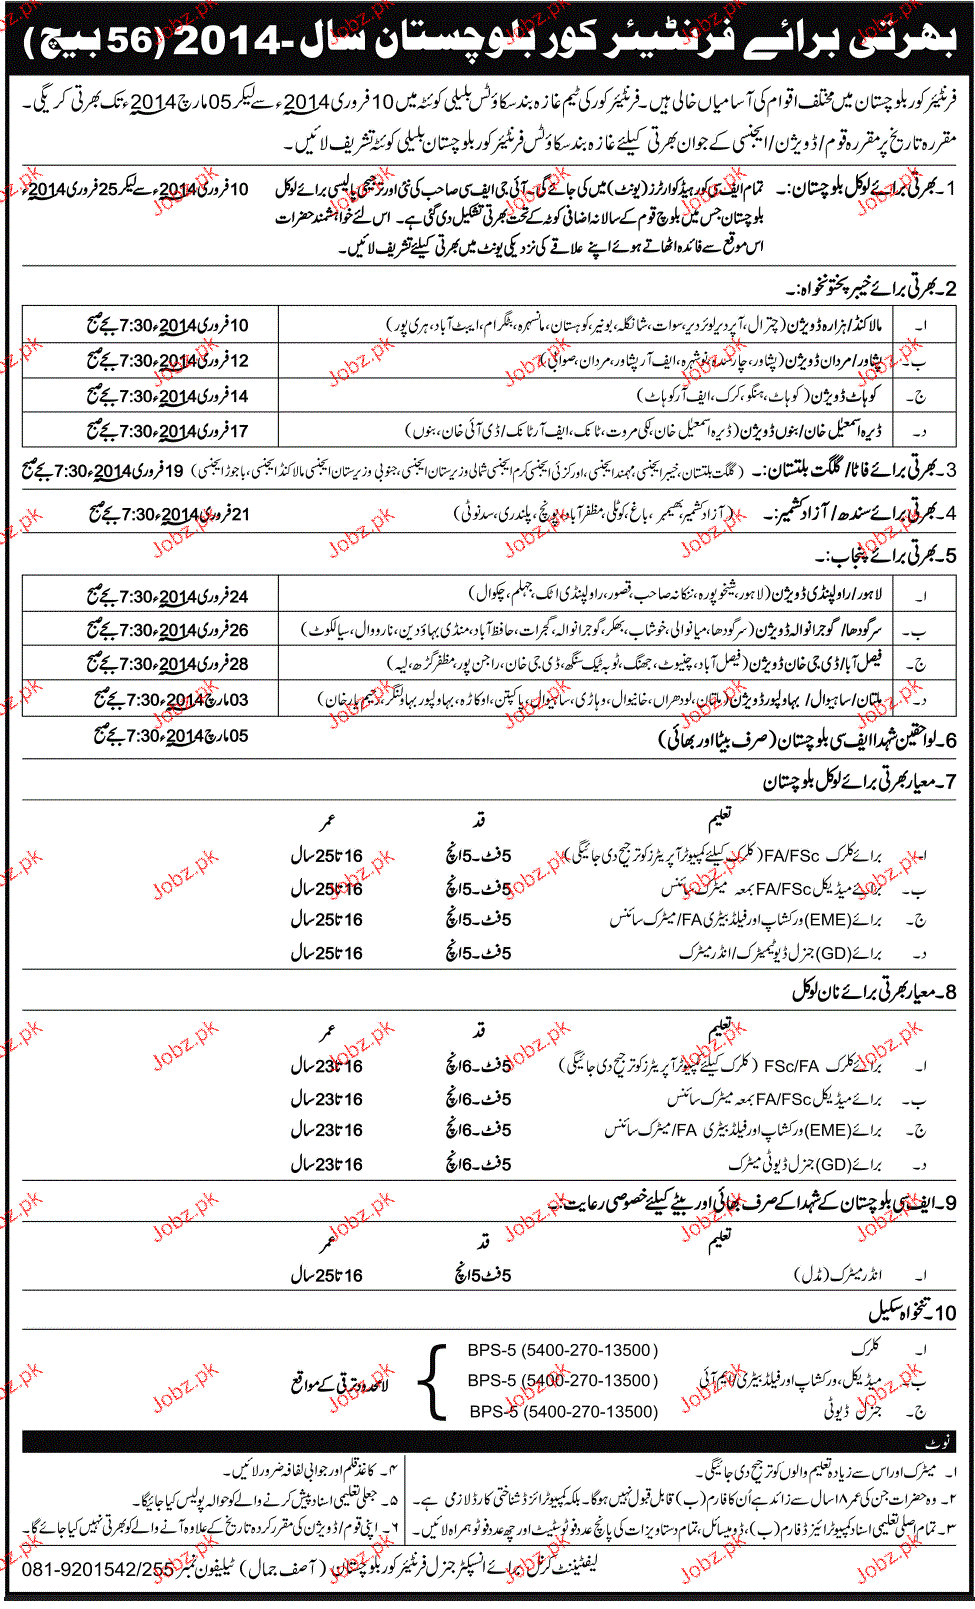 بھرتی برائے فرنٹیئر کور بلوچستان سال -2014 (56 بیچ)
فرنٹیئر کور بلوچستان میں مختلف اقوام کی آسامیاں خالی ہیں۔ فرنٹیئر کور کی ٹیم غازہ بند سکاؤٹس بلیلی کوئٹہ میں 10 فروری 2014ء سے لیکر 05 مارچ 2014ء تک بھرتی کریگی۔
مقررہ تاریخ پر مقررہ قوم/ڈویژن/ایجنسی کے جوان بھرتی کیلئے غازہ بند سکاؤٹس فرنٹیئر کور بلوچستان بلیلی کوئٹہ تشریف لائیں۔
1۔ بھرتی برائے لوکل بلوچستان:۔ تمام ایف سی کور ہیڈ کوارٹرز (یونٹ) میں کی جائے گی۔ آئی جی ایف سی صاحب کی نئی اور ترجیحی پالیسی برائے لوکل 10 فروری 2014ء سے لیکر 25 فروری 2014ء
بلوچستان جس میں بلوچ قوم کے سالانہ اضافی کوٹہ کے تحت بھرتی تشکیل دی گئی ہے۔ اس لئے خواہشمند حضرات
اس موقع سے فائدہ اٹھاتے ہوئے اپنے علاقے کی نزدیکی یونٹ میں بھرتی کیلئے تشریف لائیں۔
2۔ بھرتی برائے خیبر پختونخواہ:۔
ا۔ مالاکنڈ/ہزارہ ڈویژن (چترال، اَپر دیر، لوئر دیر، سوات، شانگلہ، بونیر، کوہستان، مانسہرہ، بٹگرام، ایبٹ آباد، ہری پور) 10 فروری 2014ء 7:30 بجے صبح
ب۔ پشاور/مردان ڈویژن (پشاور، چارسدہ، نوشہرہ، ایف آر پشاور، مردان، صوابی) 12 فروری 2014ء 7:30 بجے صبح
ج۔ کوہاٹ ڈویژن (کوہاٹ، ہنگو، کرک، ایف آر کوہاٹ) 14 فروری 2014ء 7:30 بجے صبح
د۔ ڈیرہ اسمعیل خان/بنوں ڈویژن (ڈیرہ اسمعیل خان، لکی مروت، ٹانک، ایف آر ٹانک/ڈی آئی خان، بنوں) 17 فروری 2014ء 7:30 بجے صبح
3۔ بھرتی برائے فاٹا/گلگت بلتستان:۔ (گلگت بلتستان، خیبر ایجنسی، مہمند ایجنسی، اورکزئی ایجنسی، کرم ایجنسی، شمالی وزیرستان ایجنسی، جنوبی وزیرستان ایجنسی، مالاکنڈ ایجنسی، باجوڑ ایجنسی) 19 فروری 2014ء 7:30 بجے صبح
4۔ بھرتی برائے سندھ/آزاد کشمیر:۔ (آزاد کشمیر، بھیمبر، باغ، کوٹلی، مظفر آباد، پونچ، پلندری، سدنوتی) 21 فروری 2014ء 7:30 بجے صبح
5۔ بھرتی برائے پنجاب:۔
ا۔ لاہور/راولپنڈی ڈویژن (لاہور، شیخوپورہ، ننکانہ صاحب، قصور، راولپنڈی، اٹک، جہلم، چکوال) 24 فروری 2014ء 7:30 بجے صبح
ب۔ سرگودھا/گوجرانوالہ ڈویژن (سرگودھا، میانوالی، خوشاب، بھکر، گوجرانوالہ، گجرات، حافظ آباد، منڈی بہاؤدین، نارووال، سیالکوٹ) 26 فروری 2014ء 7:30 بجے صبح
ج۔ فیصل آباد/ڈی جی خان ڈویژن (فیصل آباد، چنیوٹ، جھنگ، ٹوبہ ٹیک سنگھ، ڈی جی خان، راجن پور، مظفر گڑھ، لیہ) 28 فروری 2014ء 7:30 بجے صبح
د۔ ملتان/ساہیوال/بہاولپور ڈویژن (ملتان، لودھراں، خانیوال، وہاڑی، ساہیوال، پاکپتن، اوکاڑہ، بہاولپور، بہاولنگر، رحیم یار خان) 03 مارچ 2014ء 7:30 بجے صبح
6۔ لواحقین شہدا ایف سی بلوچستان (صرف بیٹا اور بھائی) 05 مارچ 2014ء 7:30 بجے صبح
7۔ معیار بھرتی برائے لوکل بلوچستان
تعلیم قد عمر
ا۔ برائے کلرک FA/FSc (کلرک کیلئے کمپیوٹر آپریٹرز کو ترجیح دی جائیگی) 5 فٹ۔5 انچ 16 تا 25 سال
ب۔ برائے میڈیکل FA/FSc بمعہ میٹرک سائنس 5 فٹ۔5 انچ 16 تا 25 سال
ج۔ برائے (EME) ورکشاپ اور فیلڈ بیٹری FA/میٹرک سائنس 5 فٹ۔5 انچ 16 تا 25 سال
د۔ برائے (GD) جنرل ڈیوٹی میٹرک/انڈر میٹرک 5 فٹ۔5 انچ 16 تا 25 سال
8۔ معیار بھرتی برائے نان لوکل
تعلیم قد عمر
ا۔ برائے کلرک FSc/FA (کلرک کیلئے کمپیوٹر آپریٹرز کو ترجیح دی جائیگی) 5 فٹ۔6 انچ 16 تا 23 سال
ب۔ برائے میڈیکل FA/FSc بمعہ میٹرک سائنس 5 فٹ۔6 انچ 16 تا 23 سال
ج۔ برائے (EME) ورکشاپ اور فیلڈ بیٹری FA/میٹرک سائنس 5 فٹ۔6 انچ 16 تا 23 سال
د۔ برائے (GD) جنرل ڈیوٹی میٹرک 5 فٹ۔6 انچ 16 تا 23 سال
9۔ ایف سی بلوچستان کے شہدا کے صرف بھائی اور بیٹے کیلئے خصوصی رعایت:۔
تعلیم قد عمر
ا۔ انڈر میٹرک (مڈل) 5 فٹ 5 انچ 16 تا 25 سال
10۔ تنخواہ سکیل
ا۔ کلرک BPS-5 (5400-270-13500)
ب۔ میڈیکل، ورکشاپ اور فیلڈ بیٹری/ایم آئی BPS-5 (5400-270-13500) لامحدود ترقی کے مواقع
ج۔ جنرل ڈیوٹی BPS-5 (5400-270-13500)
نوٹ
۱۔ میٹرک اور اس سے زیادہ تعلیم والوں کو ترجیح دی جائیگی۔
۲۔ وہ حضرات جن کی عمر ۱۸ سال سے زائد ہے اُن کا فارم (ب) قابل قبول نہیں ہوگا۔ بلکہ کمپیوٹرائزڈ شناختی کارڈ لازمی ہے۔
۳۔ تمام اصلی تعلیمی اسناد کمپیوٹرائیزڈ فارم (ب)، ڈومیسائل، تمام دستاویزات کی پانچ عدد فوٹو سٹیٹ اور چھ عدد فوٹو ہمراہ لائیں۔
۴۔ کاغذ قلم اور جوابی لفافہ ضرور لائیں۔
۵۔ جعلی تعلیمی اسناد پیش کرنے والے کو حوالہ پولیس کیا جائیگا۔
۶۔ اپنی قوم/ڈویژن کی مقرر کردہ تاریخ کے علاوہ آنے والے کو بھرتی نہیں کیا جائے گا۔
لیفٹیننٹ کرنل برائے انسپکٹر جنرل فرنٹیئر کور بلوچستان (آصف جمال) ٹیلیفون نمبر 081-9201542/255
Jobz.pk